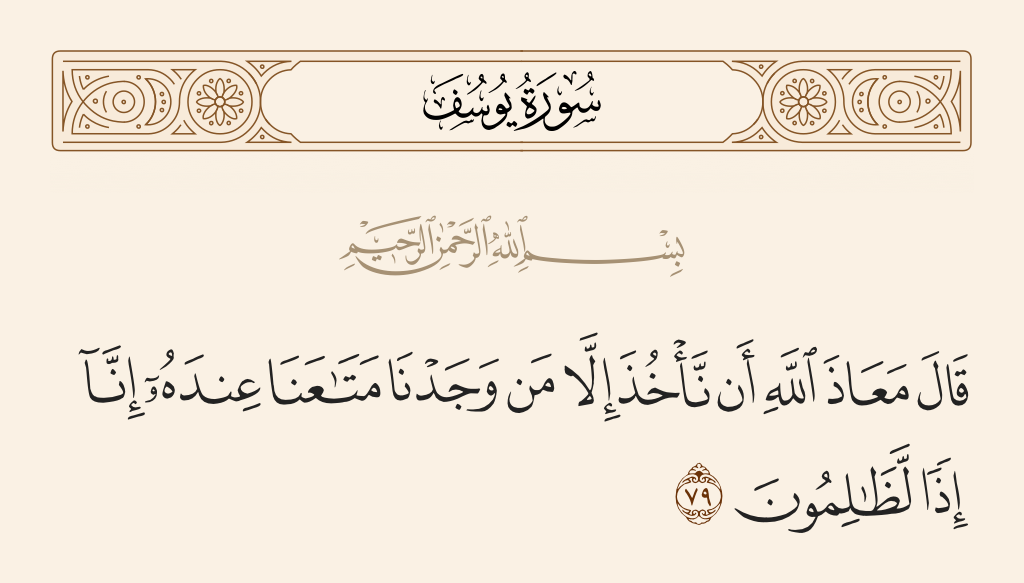 سُورَةُ يُوسُفَ
بِسْمِ ٱللَّهِ ٱلرَّحْمَٰنِ ٱلرَّحِيمِ
قَالَ مَعَاذَ ٱللَّهِ أَن نَّأْخُذَ إِلَّا مَن وَجَدْنَا مَتَـٰعَنَا عِندَهُۥٓ إِنَّآ
إِذًا لَّظَـٰلِمُونَ ٧٩